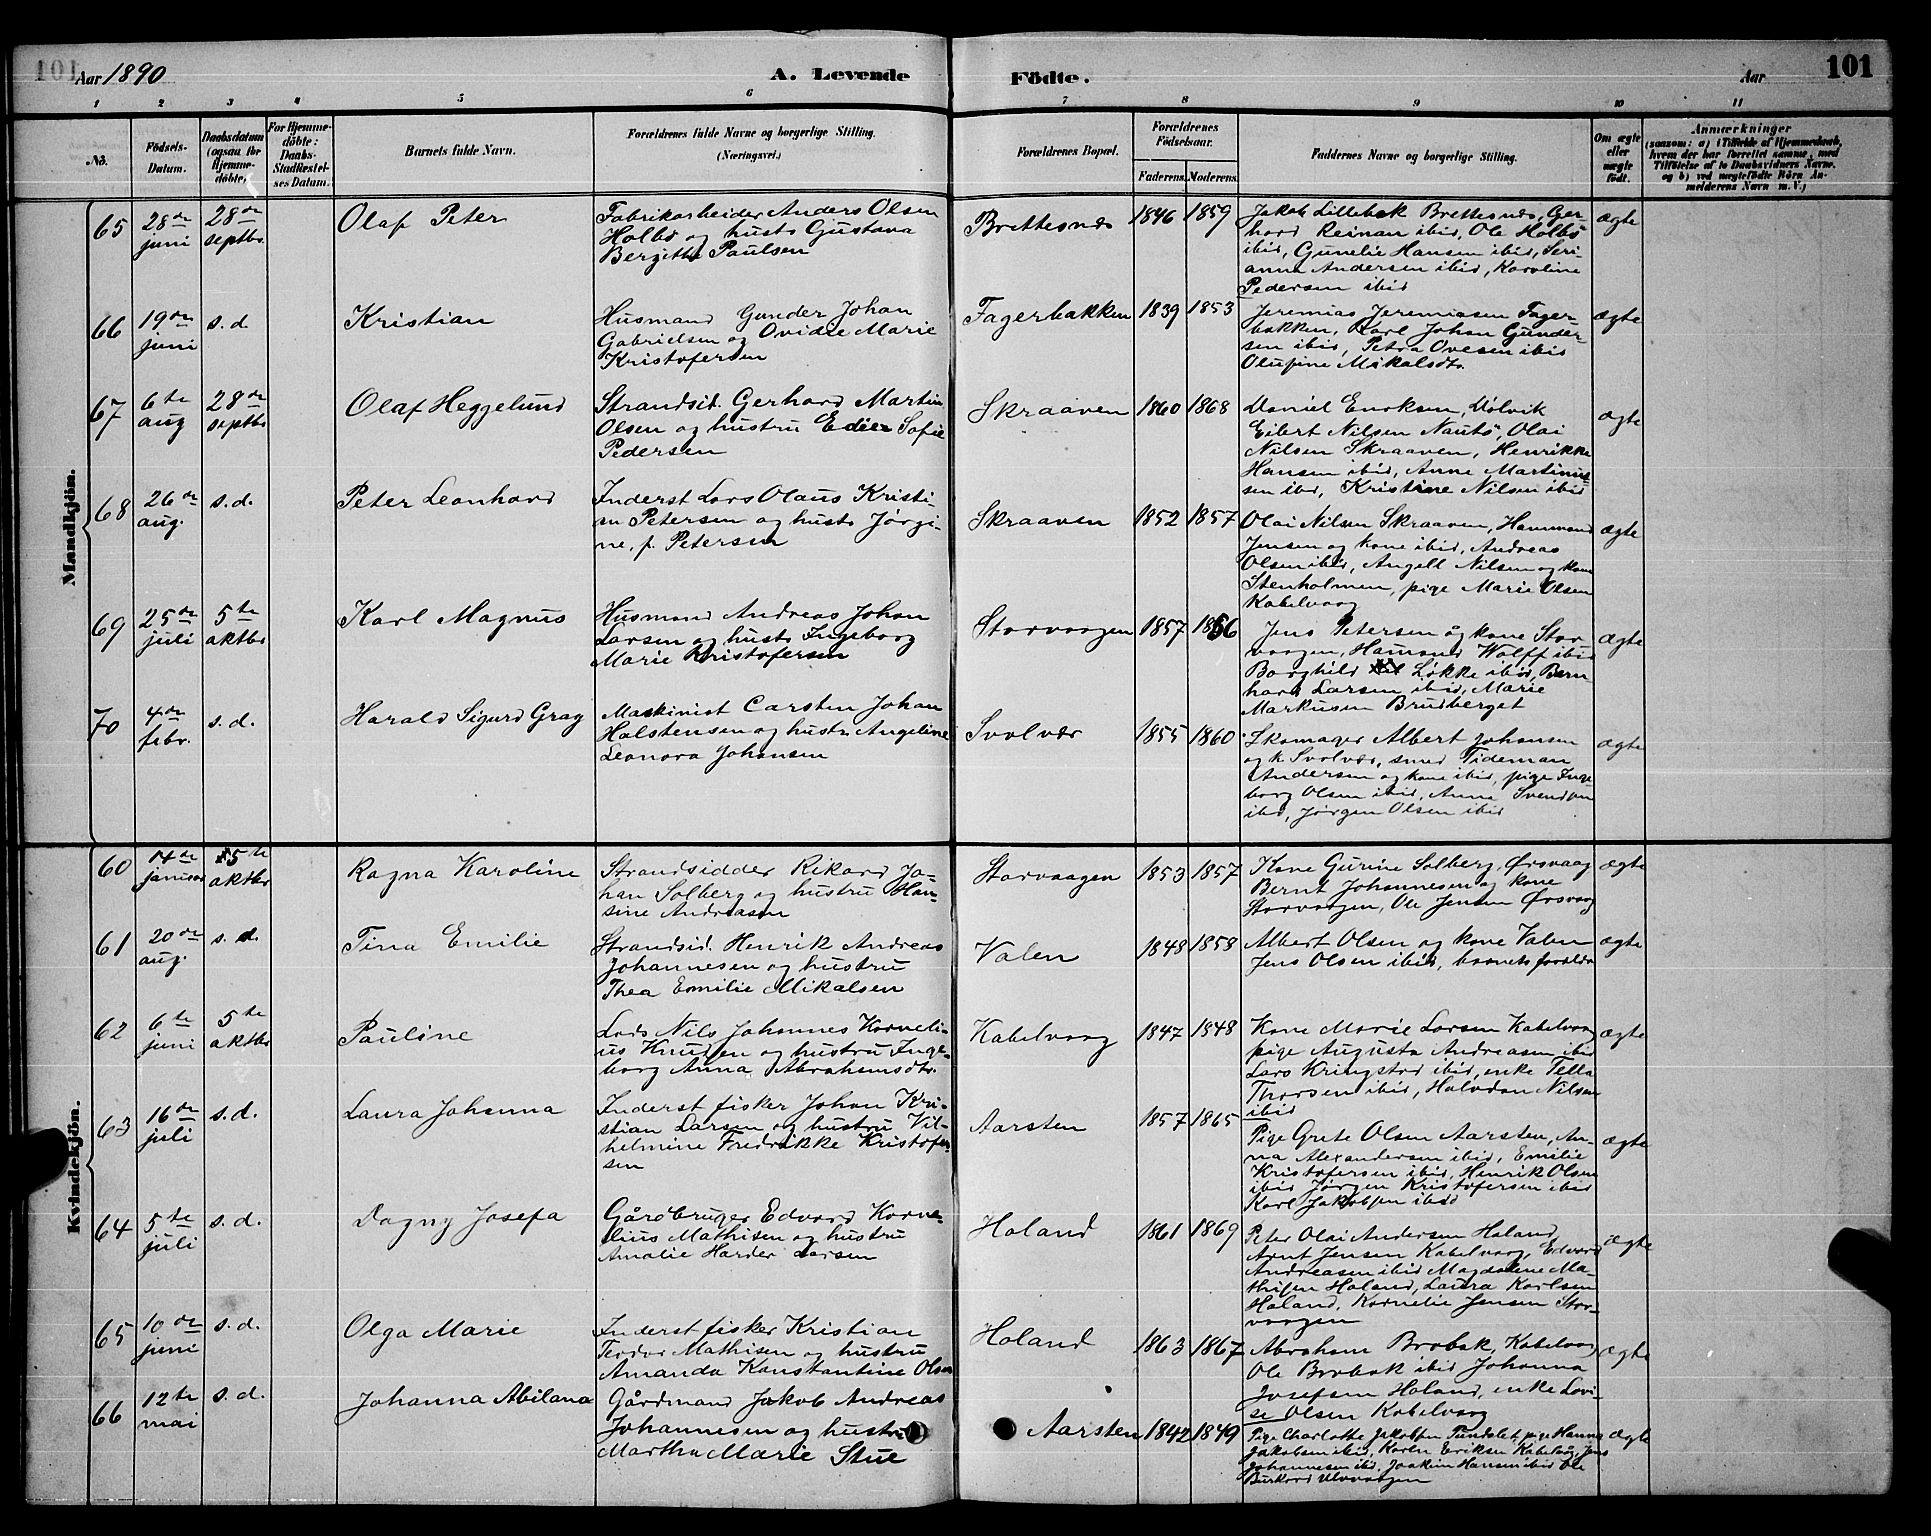 101 Aar 1890
A. Levende Födte.
Aar 101
1 2 3 4 5 6 7 8 9 10 11
No. Födsels-Datum. Daabsdatum (ogsaa for Hjemme-döbte). For Hjemme-döbte: Daabs-Stadfæstel-ses Datum. Barnets fulde Navn. Forældrenes fulde Navne og borgerlige Stilling. (Næringsvei.) Forældrenes Bopæl. Forældrenes Födselsaar. Faderens. Moderens. Faddernes Navne og borgerlige Stilling. Om ægte eller uægte födt. Anmærkninger (saasom: a) i Tilfælde af Hjemmedaab, hvem der har forrettet samme, med Tilföielse af to Daabsvidners Navne, og b) ved uægtefödte Börn An-melderens Navn m. V.)
Mandkjön.
65 28de juni 28de septbr Olaf Peter
Fabrikarbeider Anders Olsen
Holbö og hustr Gustava
Bergitte Paulsen
Brettesnæs 1846 1859
Jakob Lillebok Brettesnæs, Ger-
hard Reinan ibid, Ole Holbö
ibid, Gunelie Hansen ibid, Seri-
anna Andersen ibid, Karoline
Pedersen ibid
ægte
66 19de juni s.d. Kristian
Husmand Gunder Johan
Gabrielsen og Ovidie Marie
Kristofersen
Fagerbakken 1839 1853
Jeremias Jeremiasen Fager-
bakken, Karl Johan Gunder-
sen ibid, Petra Ovesen ibid
Olufine Mikalsdtr.
ægte
67 6te aug 28de septbr Olaf Heggelund
Strandsid. Gerhard Martin
Olsen og hustru Edier Sofie
Pedersen
Skraaven 1860 1868
Daniel Enoksen, Dölvik
Eilert Nilsen Nautö, Olai
Nilsen Skraaven, Henrikke
Hansen ibid, Anne Martinus-
sen ibid, Kristine Nilsen ibid
ægte
68 26de aug. s.d. Peter Leonhard
Inderst Lars Olaus Kristi-
an Petersen og hustr Jørgi-
ne, f. Petersen
Skraaven 1852 1857
Olai Nilsen Skraaven, Hammond
Jensen og kone ibid, Andreas
Olsen ibid, Angell Nilsen og kone
Stenholmen, pige Marie Olsen
Kabelvaag
ægte
69 25de juli 5te oktbr Karl Magnus
Husmand Andreas Johan
Larsen og hustr Ingeborg
Marie Kristofersen
Storvaagen 1857 1856
Jens Petersen og kone Stor-
vaagen, Hamond Wolff ibid
Borghild Løkke ibid, Bern-
hard Larsen ibid, Marie
Markusen Brudberget
ægte
70 4de febr. s.d. Harald Sigurd Gray
Maskinist Carsten Johan
Halstensen og hustr Angeline
Leonora Johansen
Svolvær 1855 1860
Skomager Albert Johansen
og k. Svolvær, smed Tideman
Andersen og kone ibid, pige Inge-
borg Olsen ibid, Anna Svendsen
ibid, Jørgen Olsen ibid
ægte
Kvindekjön.
60 14de januar 5te oktbr Ragna Karoline
Strandsidder Rikard Jo-
han Solberg og hustru Han-
sine Andreasen
Storvaagen 1853 1857
Kone Gurine Solberg, Ørsvaag
Bernt Johannesen og kone
Storvaagen, Ole Jensen Ørsvaag
ægte
61 20de aug. s.d. Tina Emilie
Strandsid. Henrik Andreas
Johannesen og hustru
Thea Emilie Mikalsen
Valen 1848 1858
Albert Olsen og kone Valen
Jens Olsen ibid, barnets forældre
ægte
62 6te juni 5te oktbr Pauline
Lods Nils Johannes Korneli-
us Knudsen og hustru Inge-
borg Anna Abrahamsdtr.
Kabelvaag 1847 1848
Kone Marie Larsen Kabelvaag
pige Augusta Andreasen ibid
Lars Kringstad ibid, enke Tella
Thorsen ibid, Halvdan Nilsen
ibid
ægte
63 16de juli s.d. Laura Johanna
Inderst fisker Johan Kri-
stian Larsen og hustru Vil-
helmine Fredrikke Kristofer-
sen
Aarsten 1857 1865
Pige Grete Olsen Aarsten, An-
na Alexandersen ibid, Emilie
Kristofersen ibid, Henrik Olsen
ibid, Jørgen Kristofersen ibid
Karl Jakobsen ibid
ægte
64 5te juli s.d. Dagny Josefa
Gårdbruger Edvard Korne-
lius Mathisen og hustru
Amalie Harder Larsen
Holand 1861 1869
Peter Olai Andersen Holand,
Arnt Jensen Kabelvaag, Edvard
Andreasen ibid Magdalene Ma-
thisen Holand, Laura Karlsen
Holand, Kornelie Jensen Stor-
vaagen
ægte
65 10de juni s.d. Olga Marie
Inderst fisker Kristian
Teodor Mathisen og hustru
Amanda Konstantine Olsen
Holand 1863 1867
Abraham Brobak, Kabelvaag
Ole Brobak ibid Johanna
Josefsen Holand, enke Lovi-
se Olsen Kabelvaag
ægte
66 12te mai s.d. Johanna Abilana
Gårdmand Jakob Andreas
Johannesen og hustru
Martha Marie Stue
Aarsten 1842 1849
Pige Charlotte Jakobsen Tundalet, pige Hanna
Jakobsen ibid, Karen Eriksen Kabelvåg, Jens
Johannesen ibid, Joakim Hansen ibid Ole
Burkard Ulvvaagen
ægte